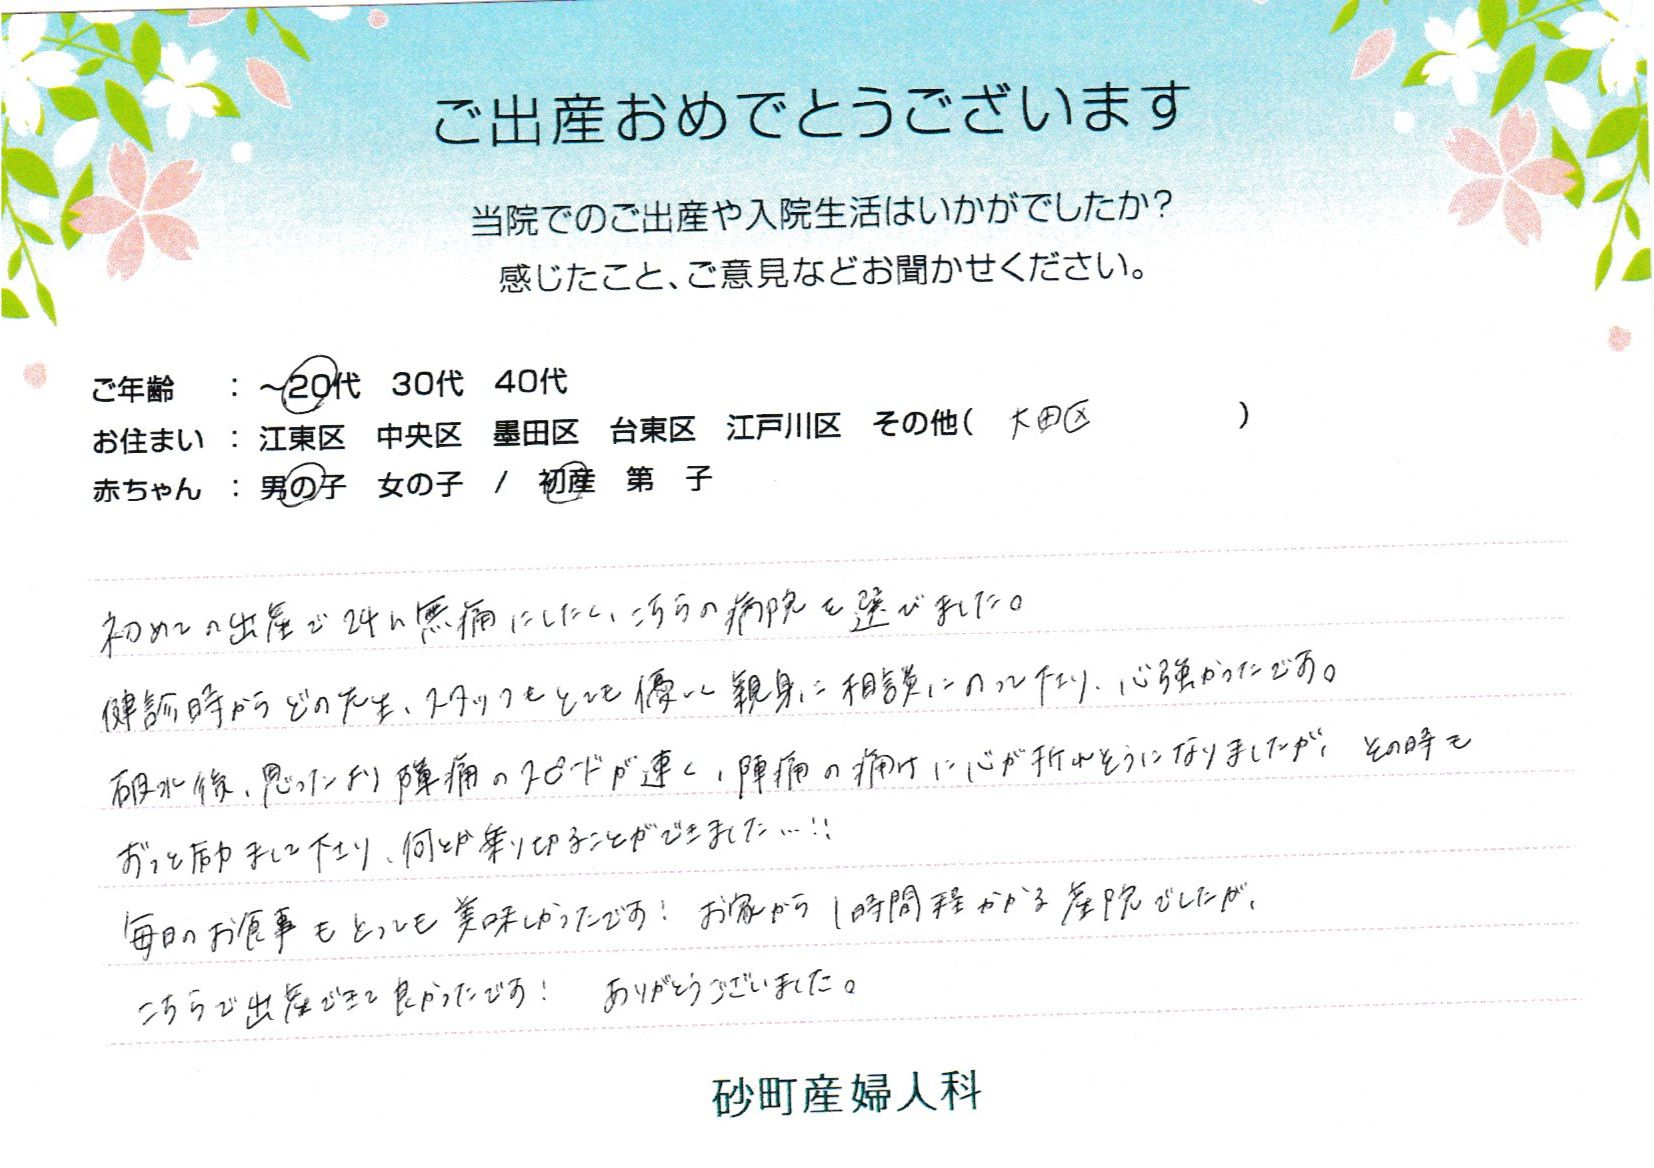 ご出産おめでとうございます
当院でのご出産や入院生活はいかがでしたか?
感じたこと、ご意見などお聞かせください。
ご年齢 : ～20代 30代 40代
お住まい : 江東区 中央区 墨田区 台東区 江戸川区 その他( 大田区 )
赤ちゃん : 男の子 女の子 / 初産 第 子
初めての出産で24h無痛にしたく、こちらの病院を選びました。
健診時からどの先生、スタッフもとても優しく親身に相談にのって下さり、心強かったです。
破水後、思ったより陣痛のスピードが速く、陣痛の痛みに心が折れそうになりましたが、その時も
ずっと励まして下さり、何とか乗り切ることができました…!!
毎日のお食事もとっても美味しかったです! お家から1時間程かかる産院でしたが、
こちらで出産できて良かったです! ありがとうございました。
砂町産婦人科